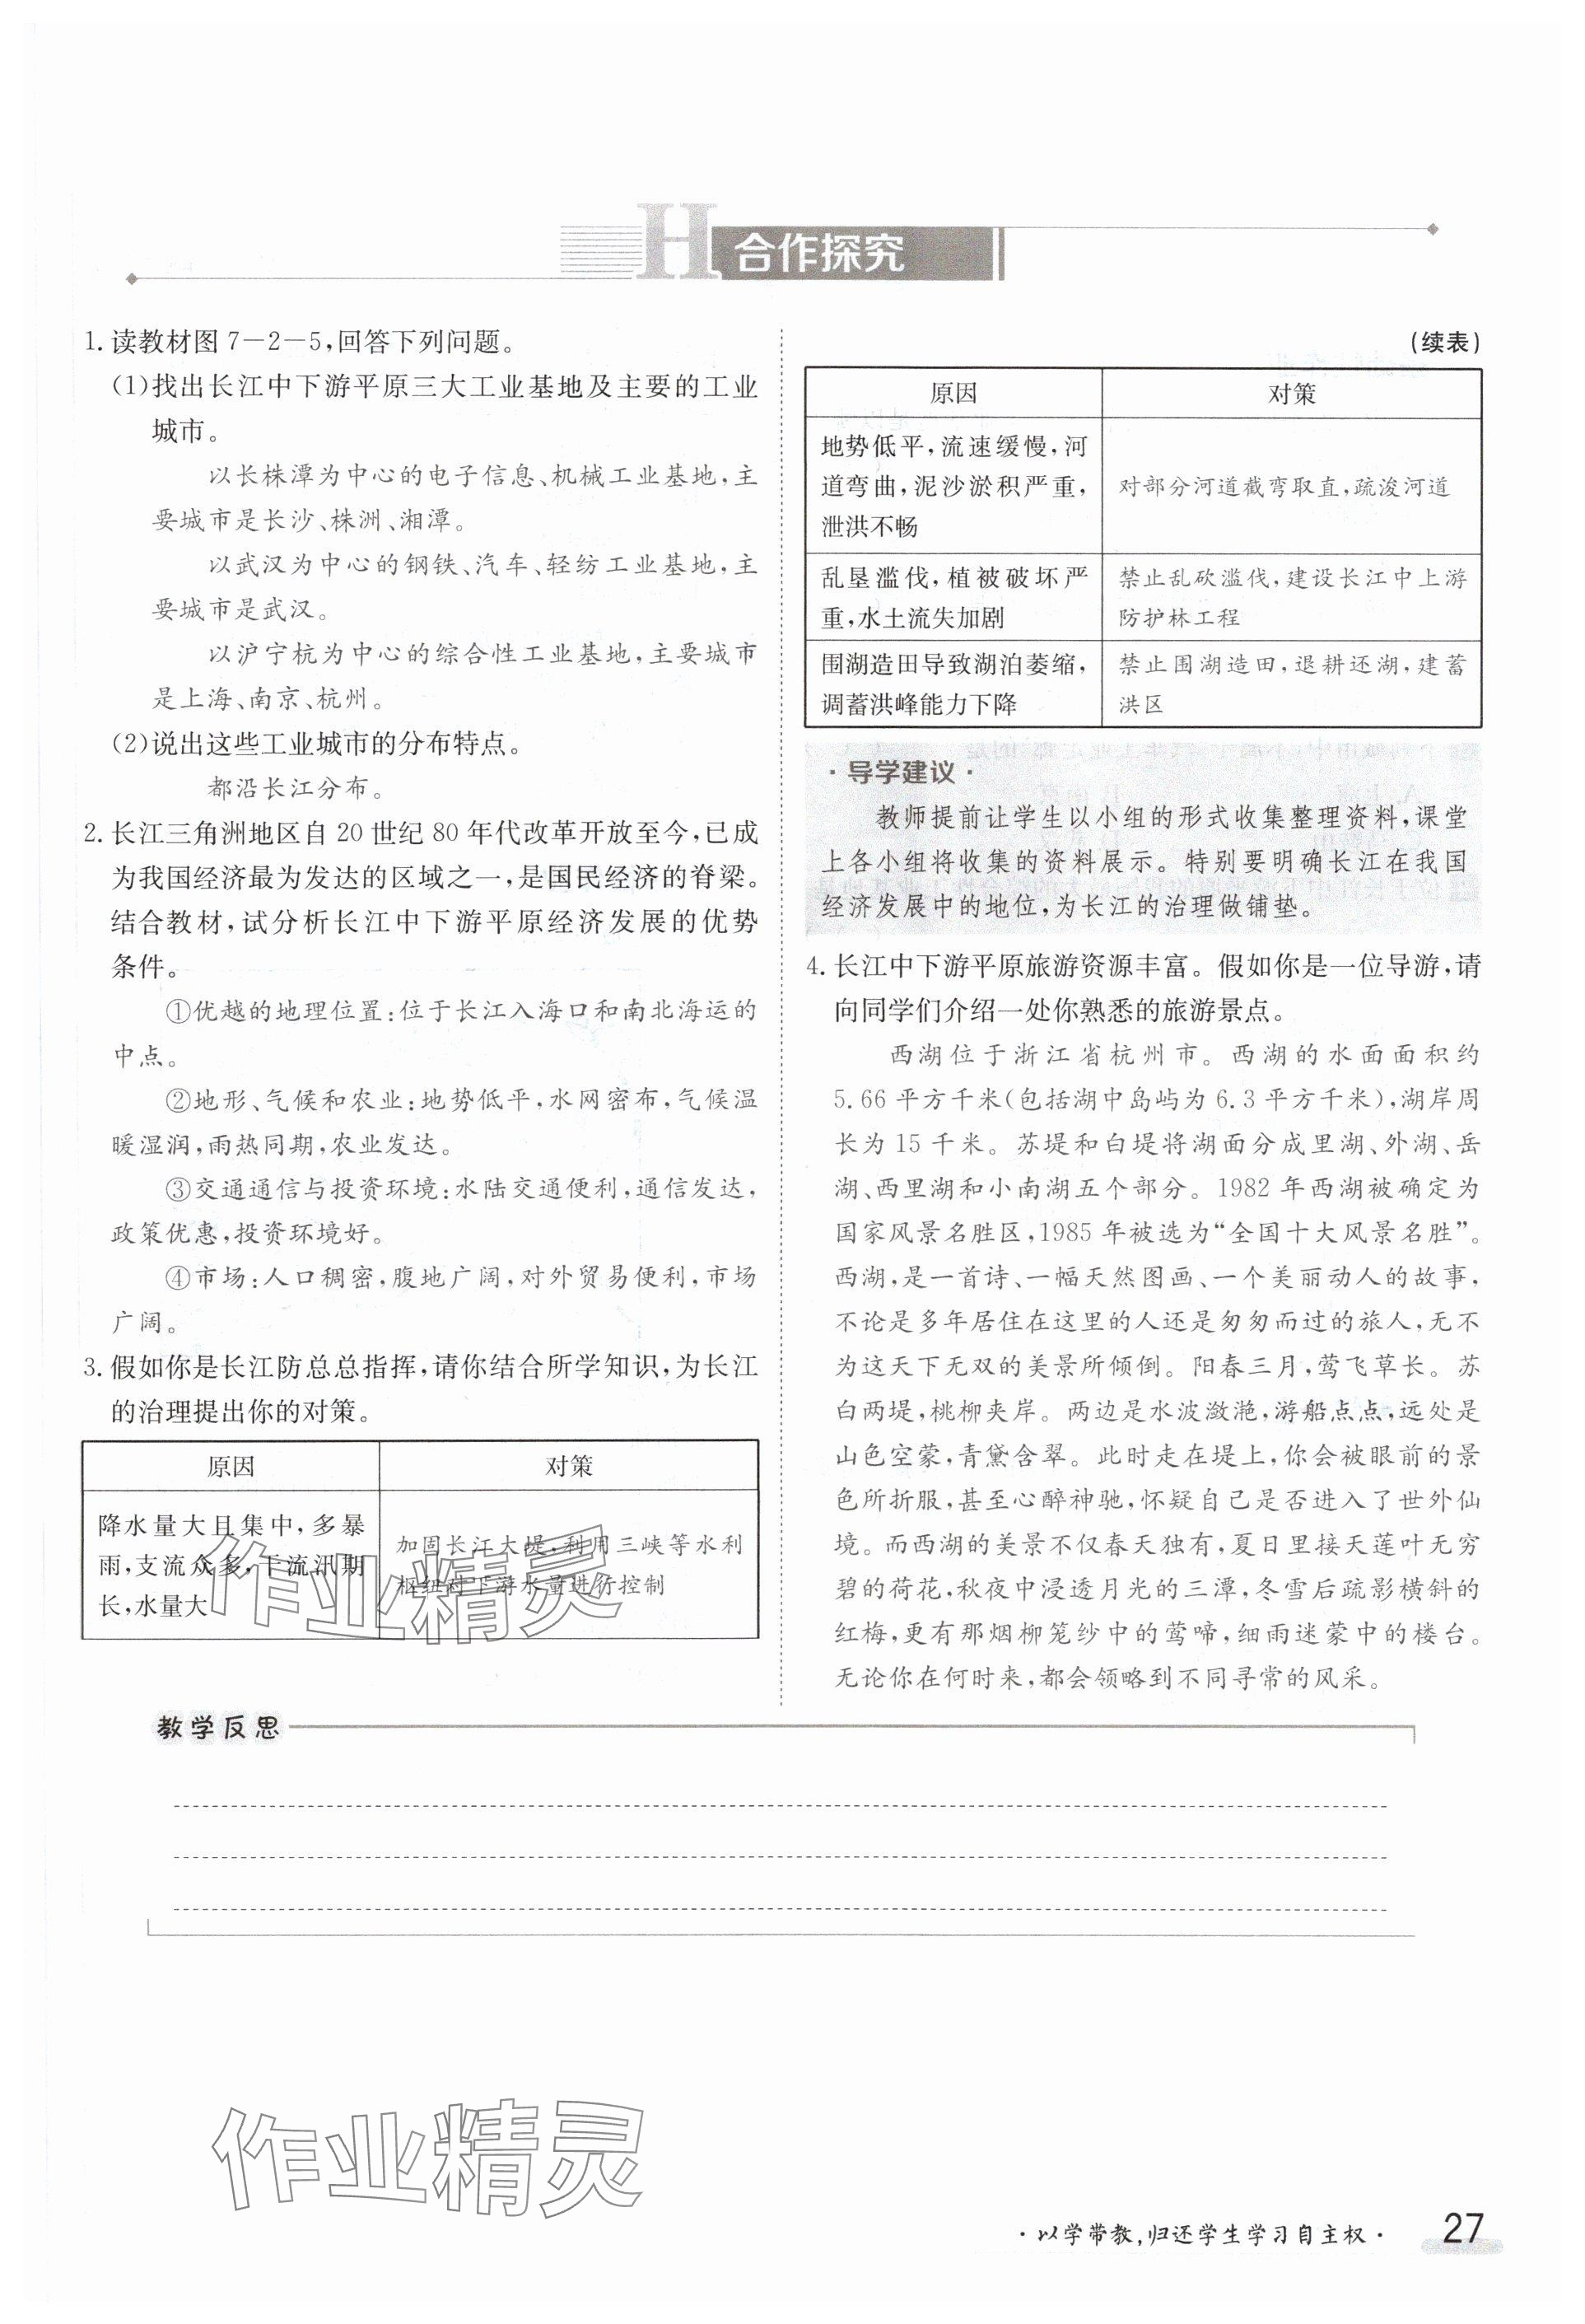 H 合作探究
1. 读教材图 7－2－5,回答下列问题。
(1)找出长江中下游平原三大工业基地及主要的工业
城市。
以长株潭为中心的电子信息、机械工业基地,主
要城市是长沙、株洲、湘潭。
以武汉为中心的钢铁、汽车、轻纺工业基地,主
要城市是武汉。
以沪宁杭为中心的综合性工业基地,主要城市
是上海、南京、杭州。
(2)说出这些工业城市的分布特点。
都沿长江分布。
2. 长江三角洲地区自 20 世纪 80 年代改革开放至今,已成
为我国经济最为发达的区域之一,是国民经济的脊梁。
结合教材,试分析长江中下游平原经济发展的优势
条件。
①优越的地理位置:位于长江入海口和南北海运的
中点。
②地形、气候和农业:地势低平,水网密布,气候温
暖湿润,雨热同期,农业发达。
③交通通信与投资环境:水陆交通便利,通信发达,
政策优惠,投资环境好。
④市场:人口稠密,腹地广阔,对外贸易便利,市场
广阔。
3. 假如你是长江防总总指挥,请你结合所学知识,为长江
的治理提出你的对策。
原因 对策
降水量大且集中,多暴
雨,支流众多,干流汛期
长,水量大
加固长江大堤,利用三峡等水利
枢纽对下游水量进行控制
(续表)
原因 对策
地势低平,流速缓慢,河
道弯曲,泥沙淤积严重,
泄洪不畅
对部分河道截弯取直,疏浚河道
乱垦滥伐,植被破坏严
重,水土流失加剧
禁止乱砍滥伐,建设长江中上游
防护林工程
围湖造田导致湖泊萎缩,
调蓄洪峰能力下降
禁止围湖造田,退耕还湖,建蓄
洪区
·导学建议·
教师提前让学生以小组的形式收集整理资料,课堂
上各小组将收集的资料展示。特别要明确长江在我国
经济发展中的地位,为长江的治理做铺垫。
4. 长江中下游平原旅游资源丰富。假如你是一位导游,请
向同学们介绍一处你熟悉的旅游景点。
西湖位于浙江省杭州市。西湖的水面面积约
5.66 平方千米(包括湖中岛屿为 6.3 平方千米),湖岸周
长为 15 千米。苏堤和白堤将湖面分成里湖、外湖、岳
湖、西里湖和小南湖五个部分。1982 年西湖被确定为
国家风景名胜区,1985 年被选为“全国十大风景名胜”。
西湖,是一首诗、一幅天然图画、一个美丽动人的故事,
不论是多年居住在这里的人还是匆匆而过的旅人,无不
为这天下无双的美景所倾倒。阳春三月,莺飞草长。苏
白两堤,桃柳夹岸。两边是水波潋滟,游船点点,远处是
山色空蒙,青黛含翠。此时走在堤上,你会被眼前的景
色所折服,甚至心醉神驰,怀疑自己是否进入了世外仙
境。而西湖的美景不仅春天独有,夏日里接天莲叶无穷
碧的荷花,秋夜中浸透月光的三潭,冬雪后疏影横斜的
红梅,更有那烟柳笼纱中的莺啼,细雨迷蒙中的楼台。
无论你在何时来,都会领略到不同寻常的风采。
作业精灵
教学反思
作业精灵
·以学带教,归还学生学习自主权· 27